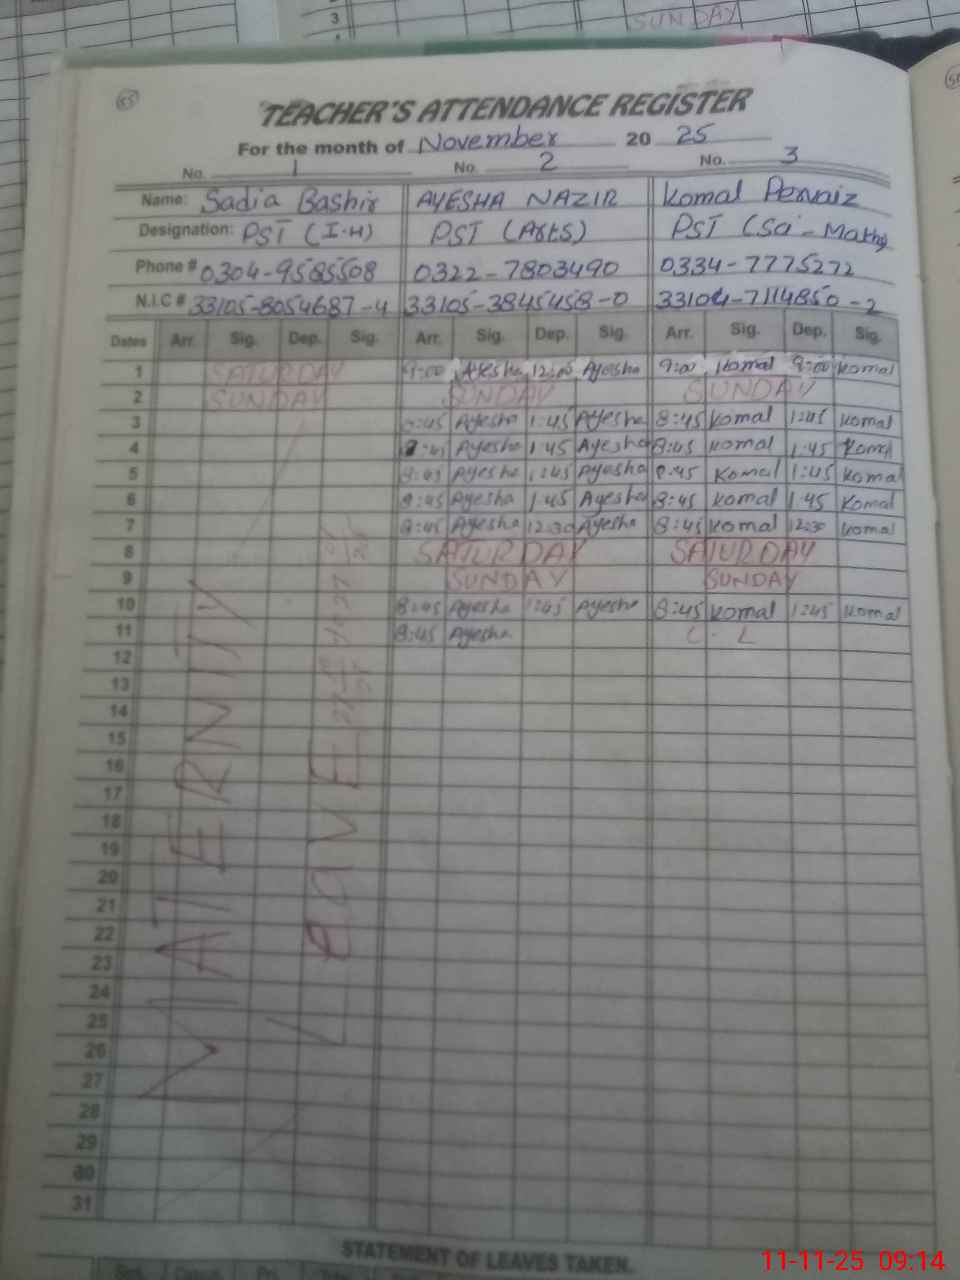 3 SUNDAY
55
TEACHER'S ATTENDANCE REGISTER
For the month of November 20 25
No. 1 No. 2 No. 3
Name: Sadia Bashir AYESHA NAZIR Komal Pervaiz
Designation: PST (I-H) PST (Arts) PST (Sci-Math)
Phone # 0304-9585508 0322-7803490 0334-7775272
N.I.C # 33105-8054687-4 33105-3845458-0 33104-7114850-2
Dates Arr. Sig. Dep. Sig. Arr. Sig. Dep. Sig. Arr. Sig. Dep. Sig.
1 SATURDAY 9:00 Ayesha 12:00 Ayesha 9:00 Komal 9:00 Komal
2 SUNDAY SUNDAY SUNDAY
3 8:45 Ayesha 1:45 Ayesha 8:45 Komal 1:45 Komal
4 8:45 Ayesha 1:45 Ayesha 8:45 Komal 1:45 Komal
5 8:45 Ayesha 1:45 Ayesha 8:45 Komal 1:45 Komal
6 8:45 Ayesha 1:45 Ayesha 8:45 Komal 1:45 Komal
7 8:45 Ayesha 12:30 Ayesha 8:45 Komal 12:30 Komal
8 SATURDAY SATURDAY
9 SUNDAY SUNDAY
10 8:45 Ayesha 1:45 Ayesha 8:45 Komal 1:45 Komal
11 8:45 Ayesha C. L
12
13
14
15
16
17
18
19
20
21
22
23
24
25
26
27
28
29
30
31
MATERNITY
LEAVE
STATEMENT OF LEAVES TAKEN.
11-11-25 09:14